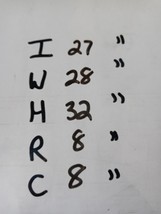 I 27 "
W 28 "
H 32 "
R 8 "
C 8 "